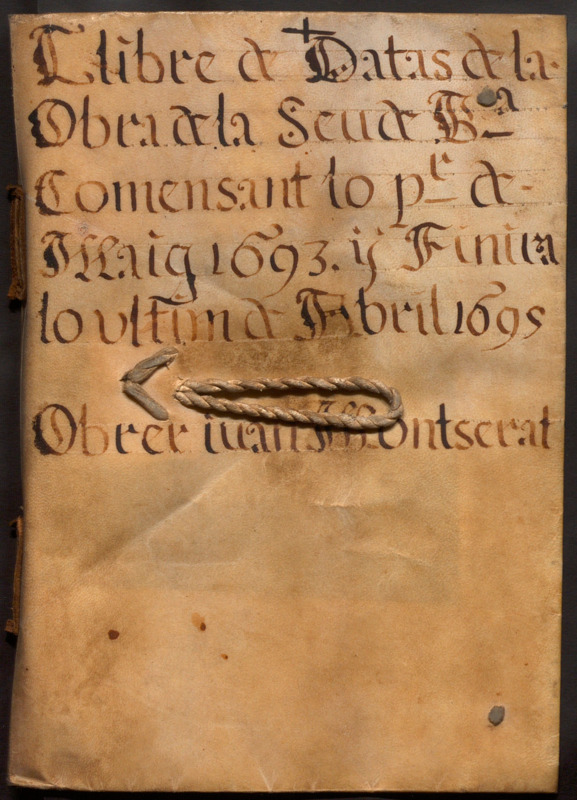 Llibre de Datas de la
Obra de la Seu de Bª
Comensant lo pr de
Maig 1693. y Finira
lo ultim de Abril 1695
Obrer iuan Montserat